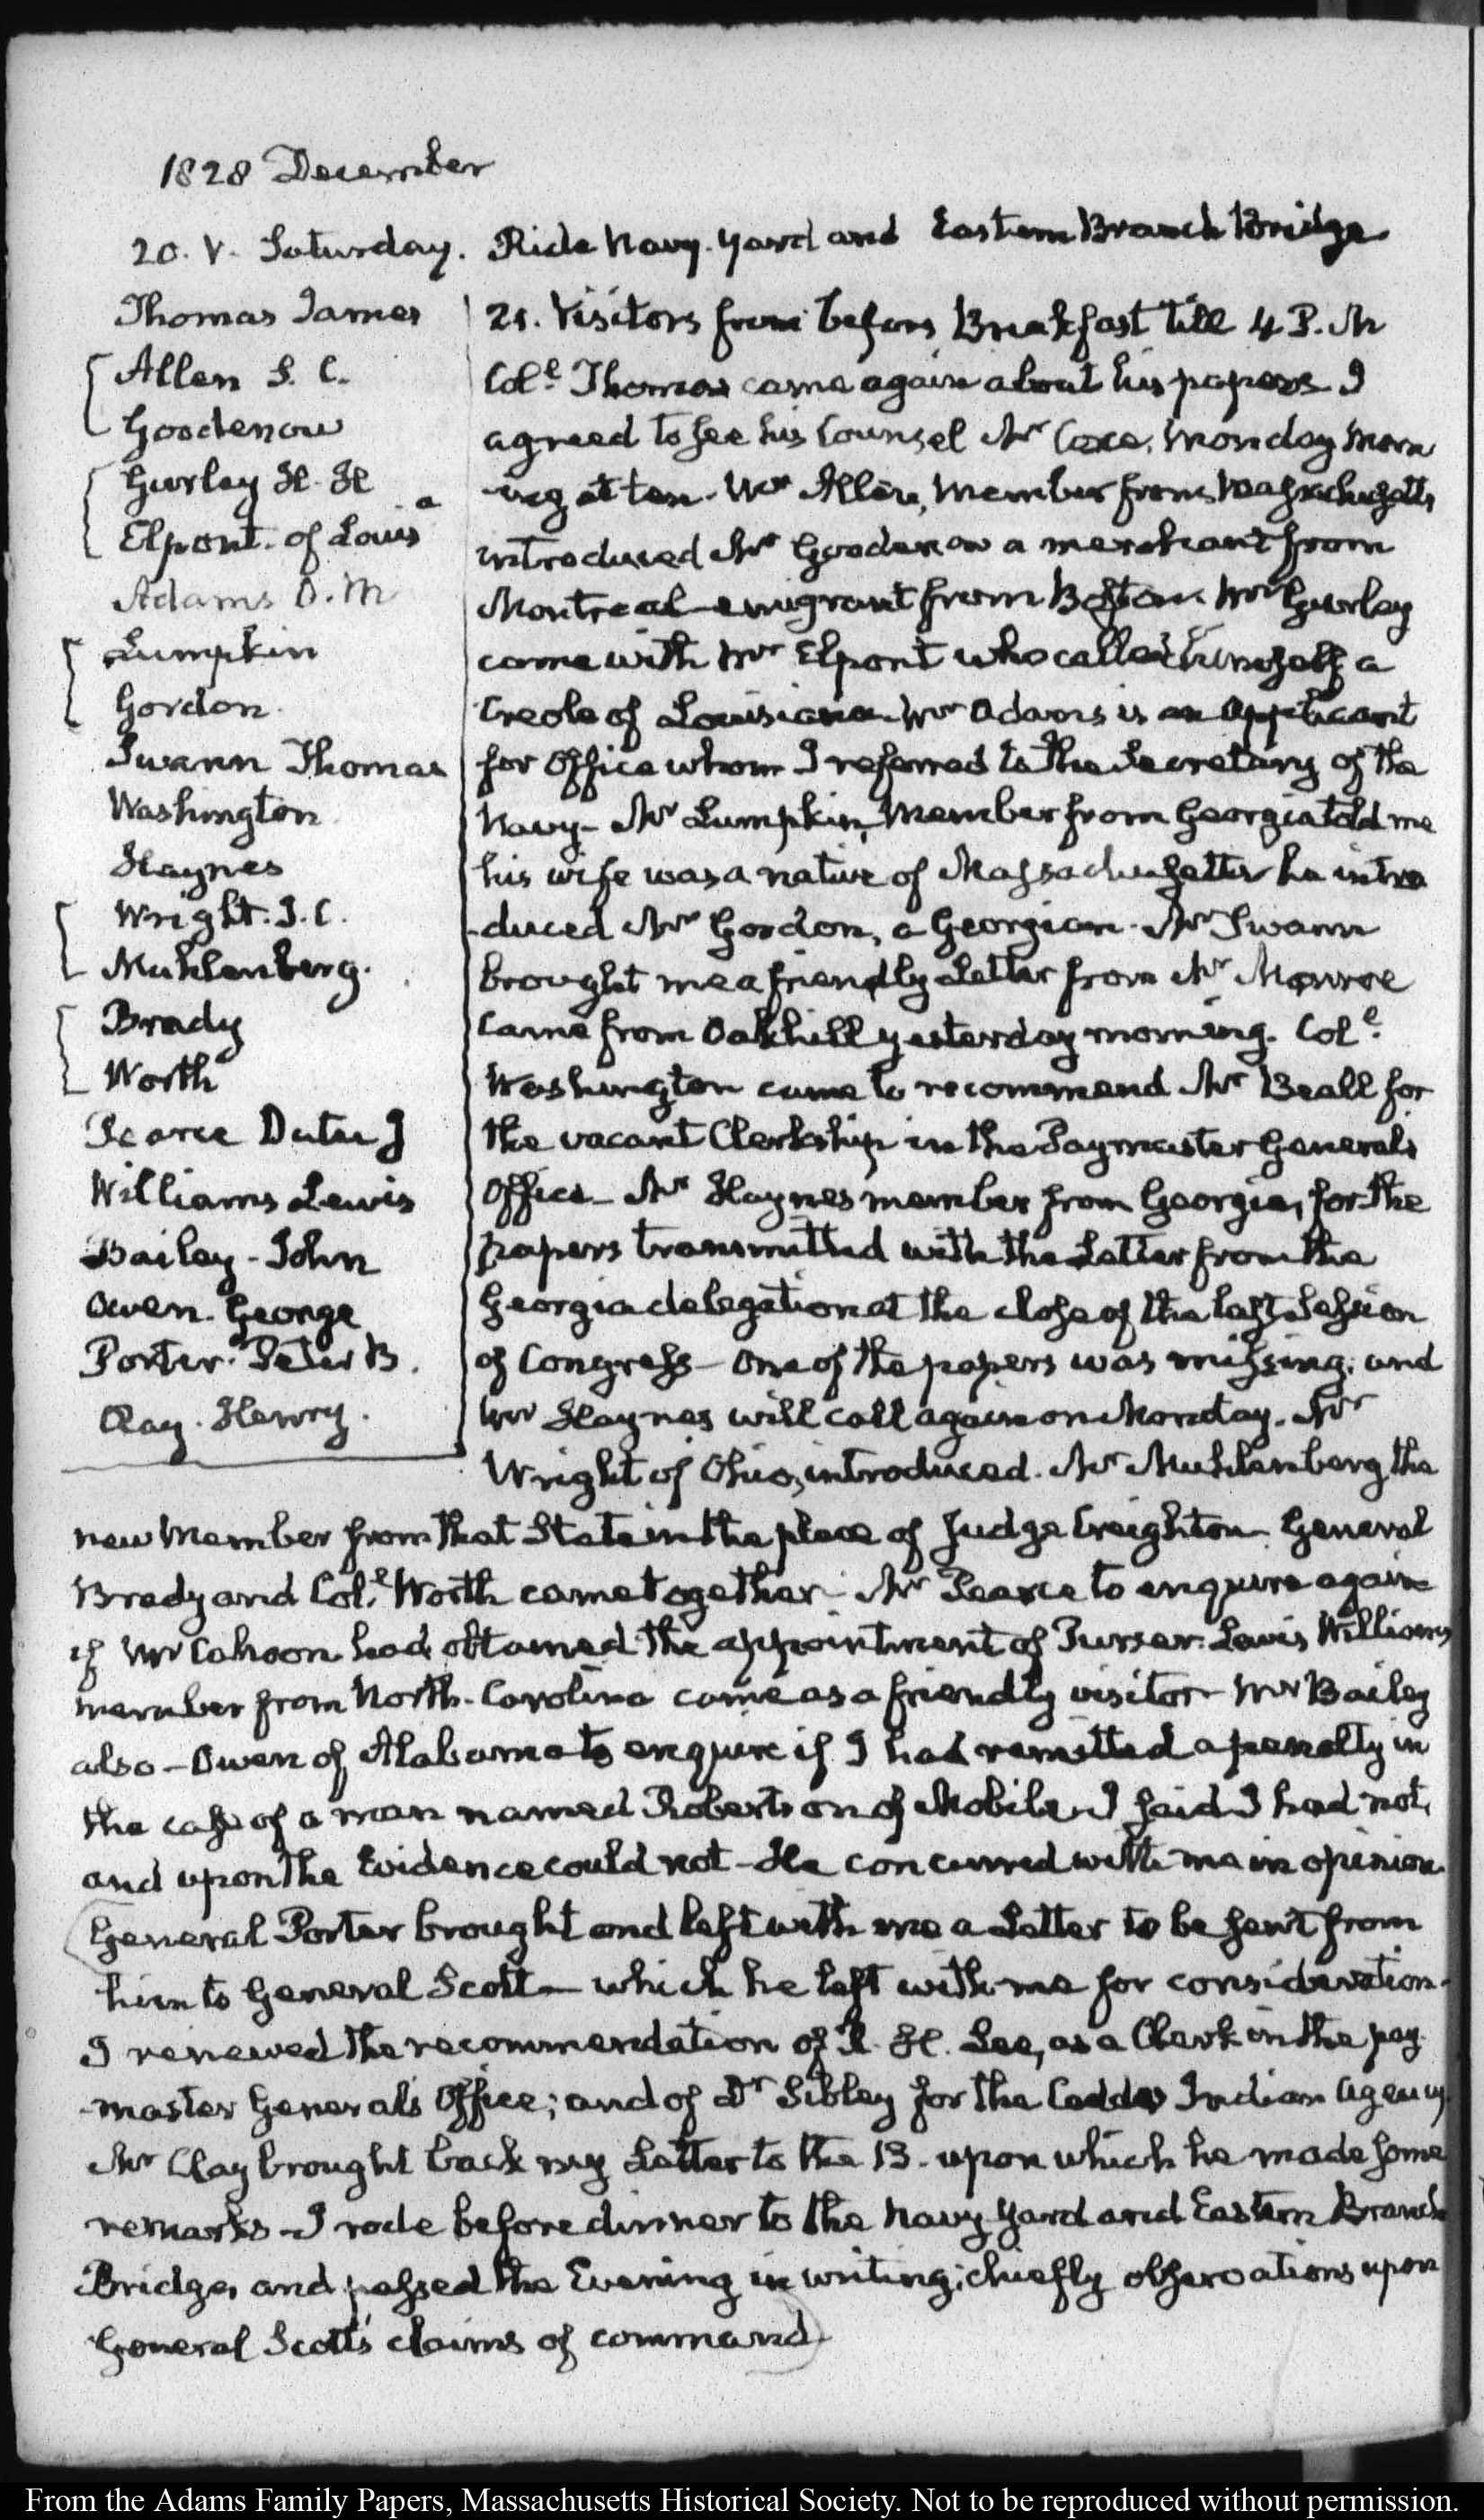 1828 December
20. V. Saturday. Ride Navy-Yard and Eastern Branch Bridge
Thomas James
Allen S. C.
Goodenow
Gurley H. H
Elpont. of Louisa
Adams D. M
Lumpkin
Gordon.
Swann Thomas
Washington
Haynes
Wright. J. C.
Muhlenberg.
Brady
Worth
Pearce Dutee J
Williams Lewis
Bailey - John
Owen. George
Porter. Peter B.
Clay. Henry.
21. Visitors from before Breakfast till 4 P. M
Coll. Thomas came again about his papers I
agreed to see his Counsel Mr Coxe, Monday Morn
-ing at ten. Mr Allen, Member from Massachusetts
introduced Mr Goodenow a merchant from
Montreal emigrant from Boston. Mr Gurley
came with Mr Elpont who called himself a
Creole of Louisiana. Mr Adams is an applicant
for Office whom I referred to the Secretary of the
Navy- Mr Lumpkin, Member from Georgia told me
his wife was a native of Massachusetts he intro
-duced Mr Gordon, a Georgian. Mr Swann
brought me a friendly Letter from Mr Monroe
came from Oakhill yesterday morning. Coll.
Washington came to recommend Mr Beall for
the vacant Clerkship in the Paymaster Generals
Office- Mr Haynes member from Georgia, for the
papers transmitted with the Letter from the
Georgia delegation at the close of the last Session
of Congress- One of the papers was missing, and
Mr Haynes will call again on Monday. Mr
Wright of Ohio, introduced. Mr Muhlenberg the
new Member from that State in the place of Judge Creighton. General
Brady and Coll. Worth came together. Mr Pearce to enquire again
if Mr Cahoon had obtained the appointment of Purser. Lewis Williams
member from North-Carolina came as a friendly visitor- Mr Bailey
also- Owen of Alabama to enquire if I had remitted a penalty in
the case of a man named Robertson of Mobile. I said I had not,
and upon the Evidence could not- He concurred with me in opinion.
General Porter brought and left with me a Letter to be sent from
him to General Scott- which he left with me for consideration.
I renewed the recommendation of R. H. Lee, as a Clerk in the pay
-master General's Office; and of Dr Sibley for the Caddo Indian agency
Mr Clay brought back my Letter to the 13. upon which he made some
remarks- I rode before dinner to the Navy Yard and Eastern Branch
Bridge, and passed the Evening in writing; chiefly observations upon
General Scott's claims of command.
From the Adams Family Papers, Massachusetts Historical Society. Not to be reproduced without permission.